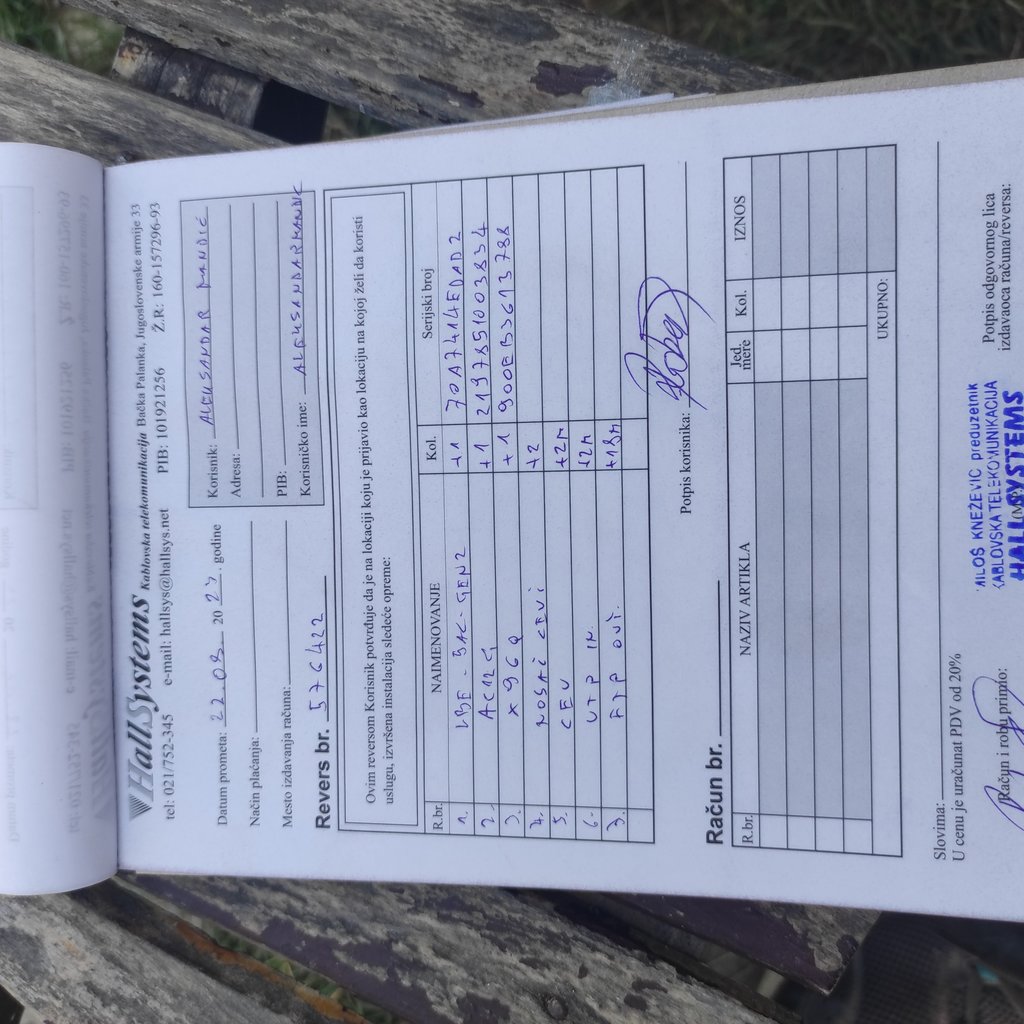 HallSystems Kablovska telekomunikacija Bačka Palanka, Jugoslovenske armije 33
tel: 021/752-345 e-mail: hallsys@hallsys.net PIB: 101921256 Ž.R: 160-157296-93
Datum prometa: 22.09. 2023. godine
Način plaćanja:
Mesto izdavanja računa:
Korisnik: ALEKSANDAR MANDIĆ
Adresa:
PIB:
Korisničko ime: ALEKSANDARMANDIC
Revers br. 576422
Ovim reversom Korisnik potvrđuje da je na lokaciji koju je prijavio kao lokaciju na kojoj želi da koristi
uslugu, izvršena instalacija sledeće opreme:
R.br. NAIMENOVANJE Kol. Serijski broj
1. LBE-5AC-GEN2 +1 70A7414EDAD2
2. AC12G +1 2197851003834
3. X96Q +1 900EB3613788
4. NOSAČ CEVI +2
5. CEV +2M
6. UTP IN. +2M
7. FTP OUT. +18M
Potpis korisnika:
Račun br.
R.br. NAZIV ARTIKLA Jed. mere Kol. IZNOS
UKUPNO:
Slovima:
U cenu je uračunat PDV od 20%
Račun i robu primio:
MILOŠ KNEŽEVIĆ preduzetnik
KABLOVSKA TELEKOMUNIKACIJA
HALL SYSTEMS
Potpis odgovornog lica
izdavaoca računa/reversa: